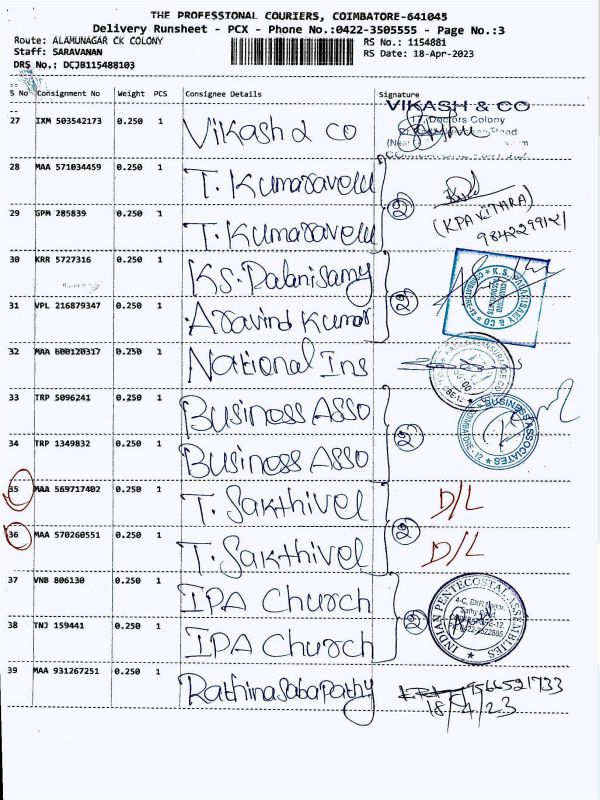 THE PROFESSIONAL COURIERS, COIMBATORE-641045
Delivery Runsheet - PCX - Phone No.:0422-3505555 - Page No.:3
Route: ALAMUNAGAR CK COLONY RS No.: 1154881
Staff: SARAVANAN RS Date: 18-Apr-2023
DRS No.: DCJB115488103
S No Consignment No Weight PCS Consignee Details Signature
VIKASH & CO
27 IXM 503542173 0.250 1 Vikash & co
17, Doctors Colony
28 MAA 571034459 0.250 1 T. Kumaravelu
(2) (KPAVITHRA)
29 GPM 285839 0.250 1 T. Kumaravelu
30 KRR 5727316 0.250 1 K.S. Palanisamy
(2) K.S. PALANISAMY & CO
31 VPL 216879347 0.250 1 Aravind Kumar
32 MAA 600120317 0.250 1 National Ins
33 TRP 5096241 0.250 1 Business Asso
(2) BUSINESS ASSOCIATES
34 TRP 1349832 0.250 1 Business Asso
35 MAA 569717402 0.250 1 T. Sakthivel D/L
(2)
36 MAA 570260551 0.250 1 T. Sakthivel D/L
37 VNB 806130 0.250 1 IPA Church
(2) INDIAN PENTECOSTAL ASSEMBLIES
38 TNJ 159441 0.250 1 IPA Church
39 MAA 931267251 0.250 1 Rathinasabapathy 9566521733
18/4/23